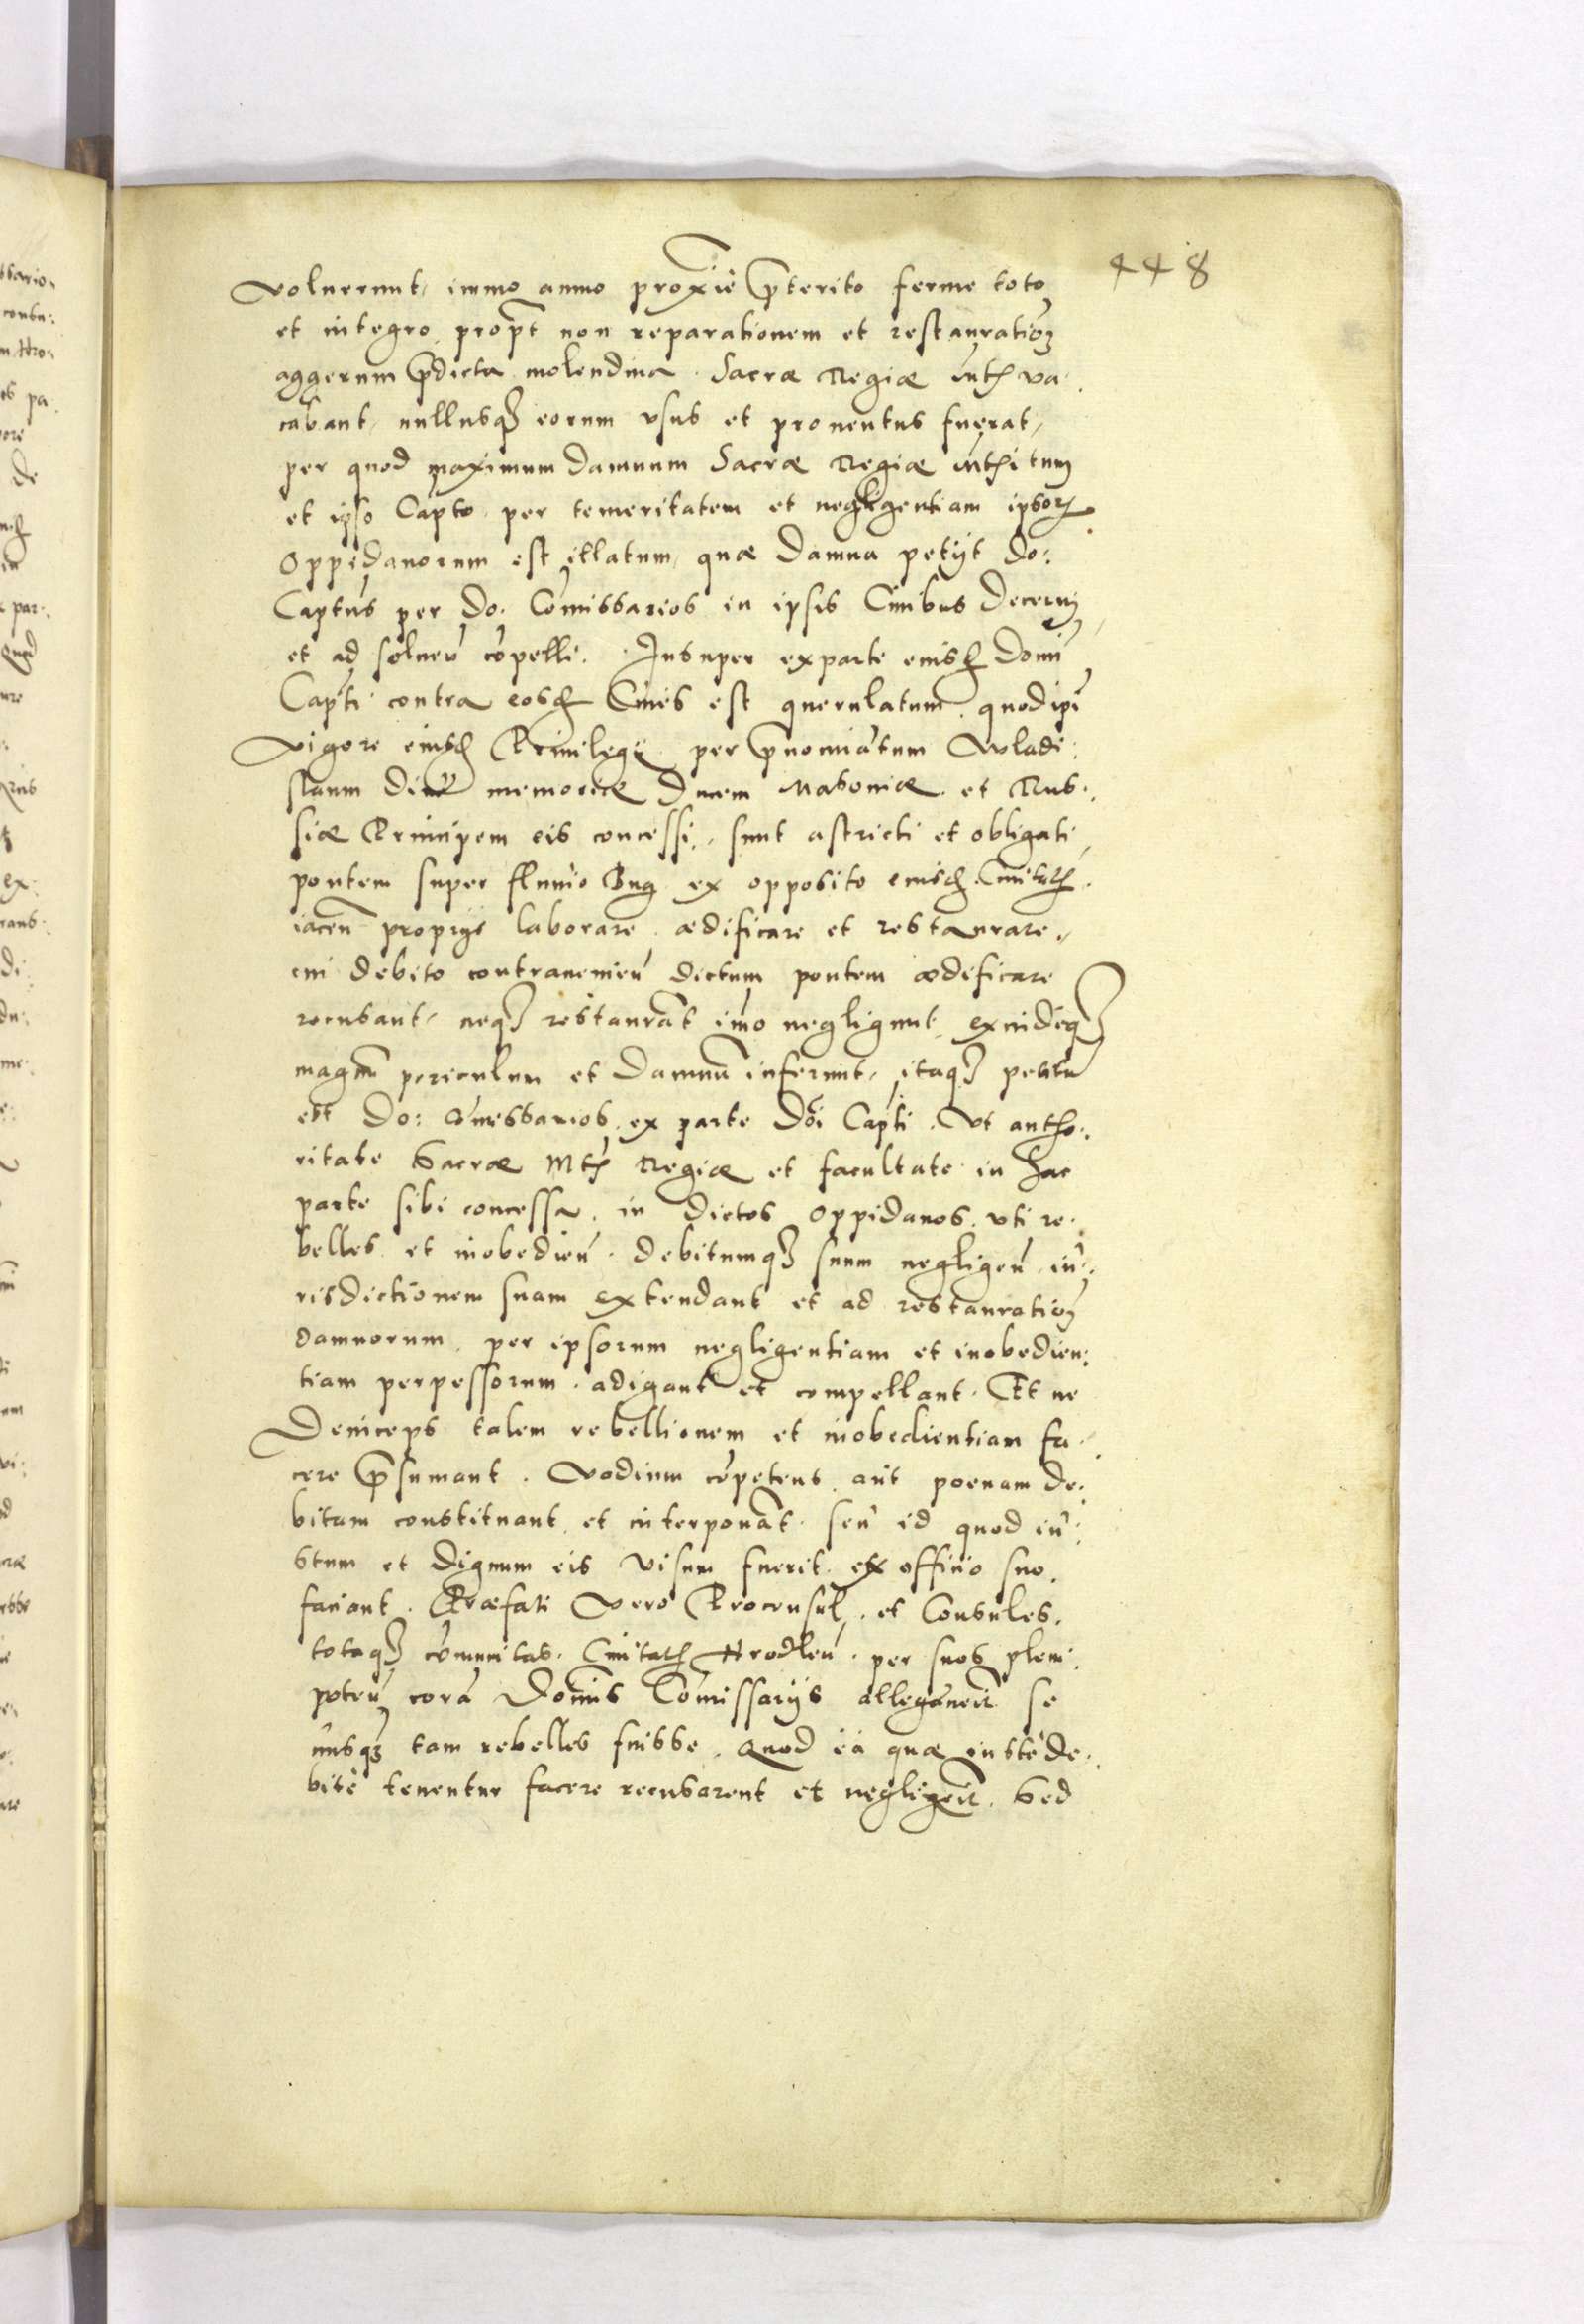 448
voluerunt, immo anno proxiē p̄terito ferme toto
et integro propt̄ non reparationem et restauratioȩ
aggerum p̄dicta molendina Sacræ Regiæ Mtis va:
cabant, nullusq̨ eorum usus et prouentus fuerat,
per quod maximum damnum Sacræ Regiæ
et ipso Capto per temeritatem et negligentiam ipsoꝝ
Oppidanorum est illatum, quæ damna petijt Do:
Captūs per Do: Com̄issarios in ipsis Ciuibus decerni
et ad soluen̄ cōpelli. Insuper ex parte eiusd̨ Domi
Capti contra eosd̨ Ciues est querulatum, quod ipī
vigore eiusd̨ Priuilegij per p̄nomiātum Wladi:
slaum Diuæ memoriæ Ducem Masouiæ et Rus:
siæ Principem eis concessi, sunt astricti et obligati
pontem super fluuio Bug ex opposito eiusd̨ Ciuitatꝭ
iacen̄ proprijs laborare ædificare et restaurare,
cui debito contrauenien̄ dictum pontem ædificare
recusant, neq̨ restaurāt im̄o negligunt, exindeq̨
magm̄ periculum et damnū inferunt, itaq̨ petitū
est Do: Com̄issarios ex parte Dōi Capti. Ut autho:
ritate Sacræ Mtꝭ Regiæ et facultate in hac
parte sibi concessa, in dictos Oppidanos, uti re:
belles et inobedien̄, debitumq̨ suum negligen̄ iu:
risdictionem suam extendant et ad restauratioȩ
damnorum, per ipsorum negligentiam et inobedien:
tiam perpessorum, adigant et compellant. Et ne
deinceps talem rebellionem et inobedientiam fa:
cere p̄sumant. Vadium cōpetens aut poenam de:
bitam constituant et interponāt, seu id quod iu:
stum et dignum eis visum fuerit, ex officio suo
faciant. Præfati Vero Proconsul, et Consules,
totaq̨ com̄unitas Ciuitatꝭ Hrodlen̄ per suos pleni
poten̄ corā Dominis Com̄issarijs allegauerūt se
nusq̨ tam rebelles fuisse, Quod ea quæ iustè de:
bitè tenentur facere recusarent et negligerēt, Sed